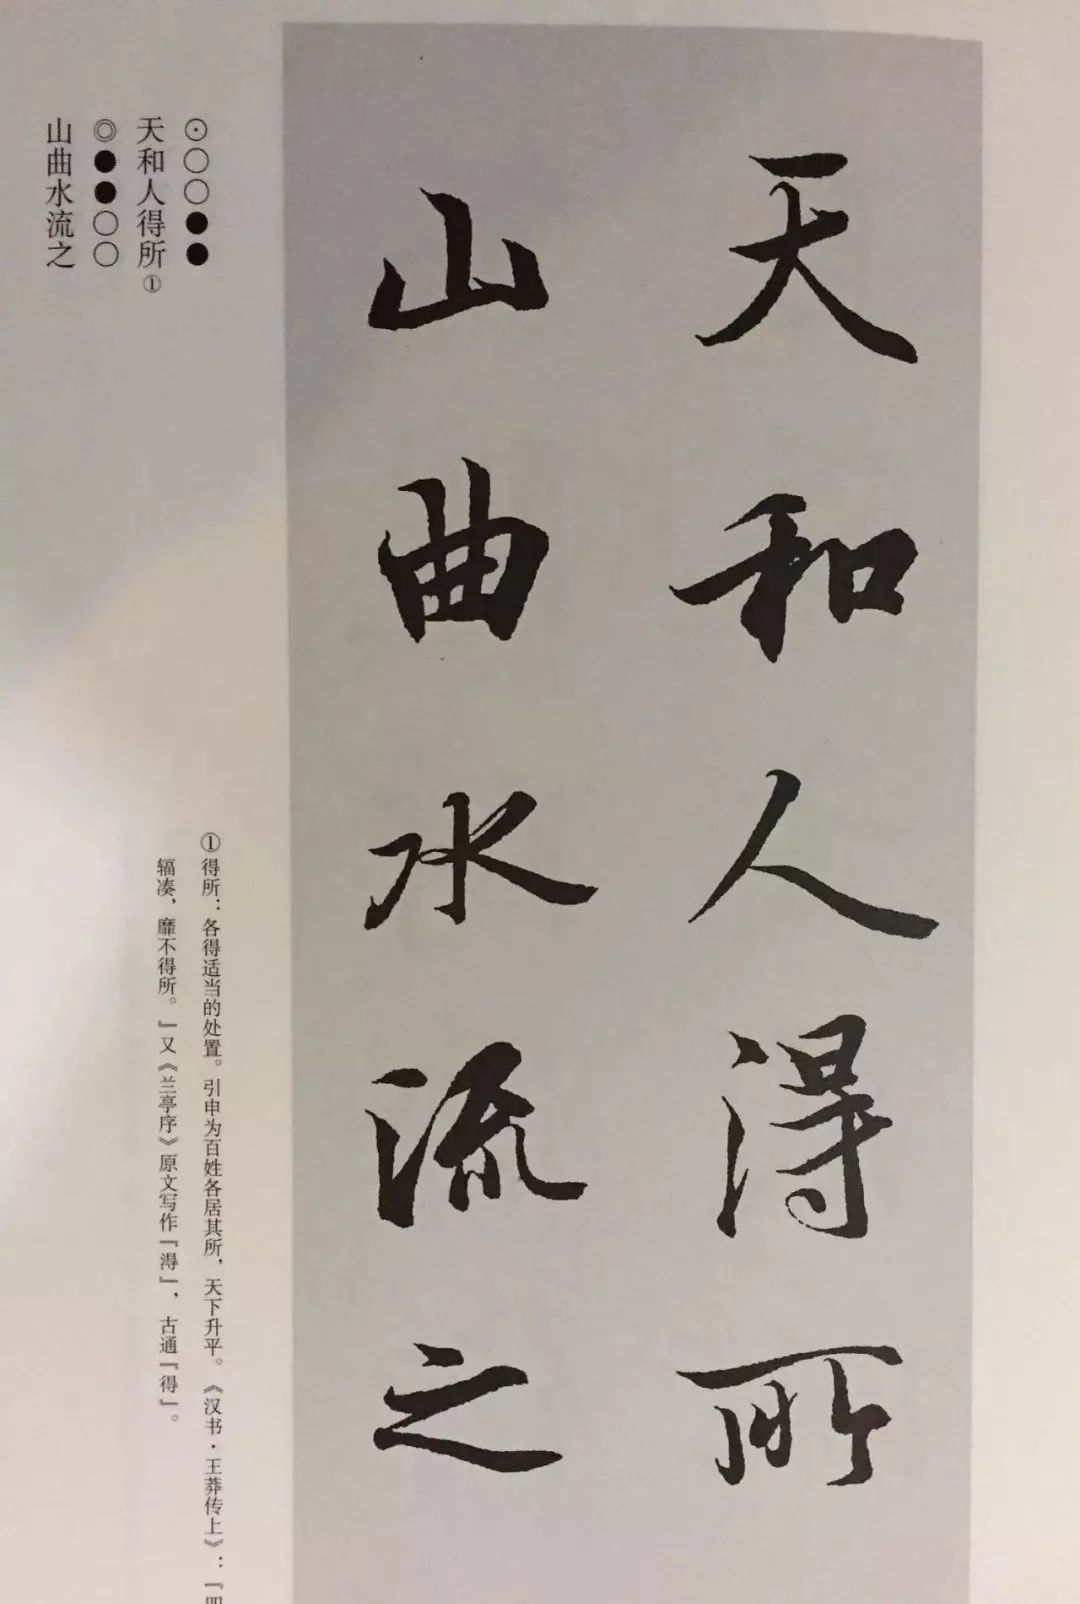 天和人得所
山曲水流之
⊙○○●●
天和人得所①
◎●●○○
山曲水流之
①得所：各得适当的处置。引申为百姓各居其所，天下升平。《汉书·王莽传上》：『四
辐凑，靡不得所。』又《兰亭序》原文写作『淂』，古通『得』。